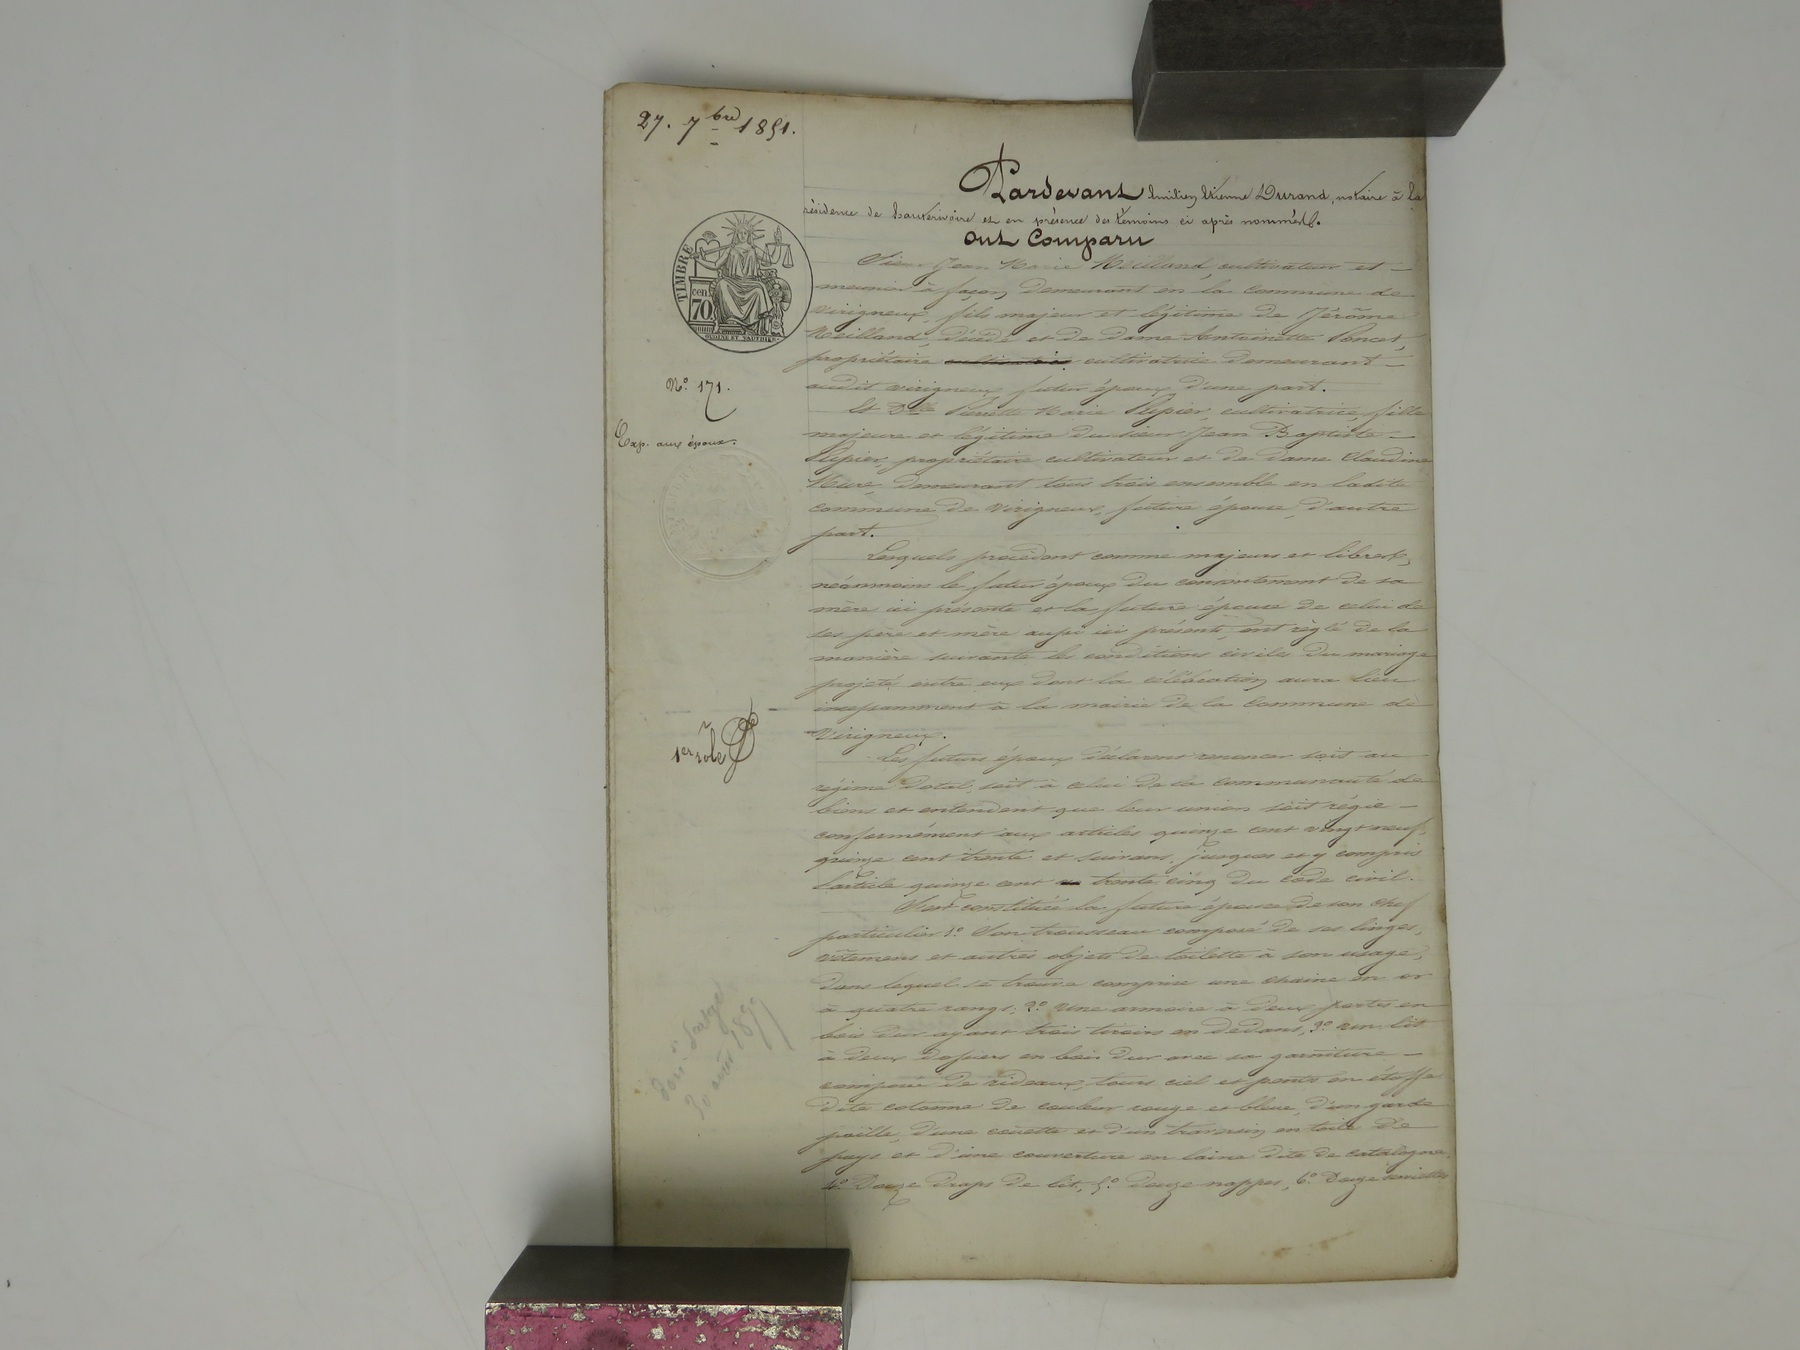 27. 7bre 1851.
Pardevant Emilien Etienne Durand, notaire à la
résidence de hauterivoire et en présence des témoins ci après nommés.
Ont Comparu
Sieur Jean Marie Meilland, cultivateur et
meunier à façon, demeurant en la commune de
Virigneux, fils majeur et légitime de Jérôme
Meilland, décédé et de dame Antoinette Poncet,
propriétaire cultivatrice demeurant
audit virigneux, futur époux d'une part.
Et Dlle Marie Pipier, cultivatrice, fille
majeure et légitime du sieur Jean Baptiste
Pipier, propriétaire cultivateur et de dame Claudine
demeurant tous trois ensemble en ladite
commune de virigneux, future épouse, d'autre
part.
Lesquels procédant comme majeurs et libres,
néanmoins le futur époux du consentement de sa
mère ici présente et la future épouse de celui de
ses père et mère aussi ici présents, ont réglé de la
manière suivante les conditions civiles du mariage
projeté entre eux dont la célébration aura lieu
incessamment à la mairie de la commune de
Virigneux.
Les futurs époux déclarent renoncer soit au
régime dotal, soit à celui de la communauté de
biens et entendent que leur union soit régie
conformément aux articles quinze cent vingt neuf,
quinze cent trente et suivans, jusques et y compris
l'article quinze cent trente cinq du code civil.
S'est constituée la future épouse de son chef
particulier 1o Son trousseau composé de ses linges,
vêtemens et autres objets de toilette à son usage,
dans lequel se trouve comprise une chaine en or
à quatre rangs, 2o une armoire à deux portes en
bois dur ayant trois tiroirs en dedans, 3o un lit
à deux dossiers en bois dur avec sa garniture
composée de rideaux, tours ciel et pents en étoffe
dite cotonne de couleur rouge et bleue, d'un garde
paille, d'une couette et d'un traversin en toile de
pays et d'une couverture en laine dite de catalogne,
4o Douze draps de lit, 5o douze nappes, 6o Douze serviettes
TIMBRE
cen.
70.
OUDINE ET VAUTHIER.
No. 171.
Exp. aux époux.
1er rôle
30 1899